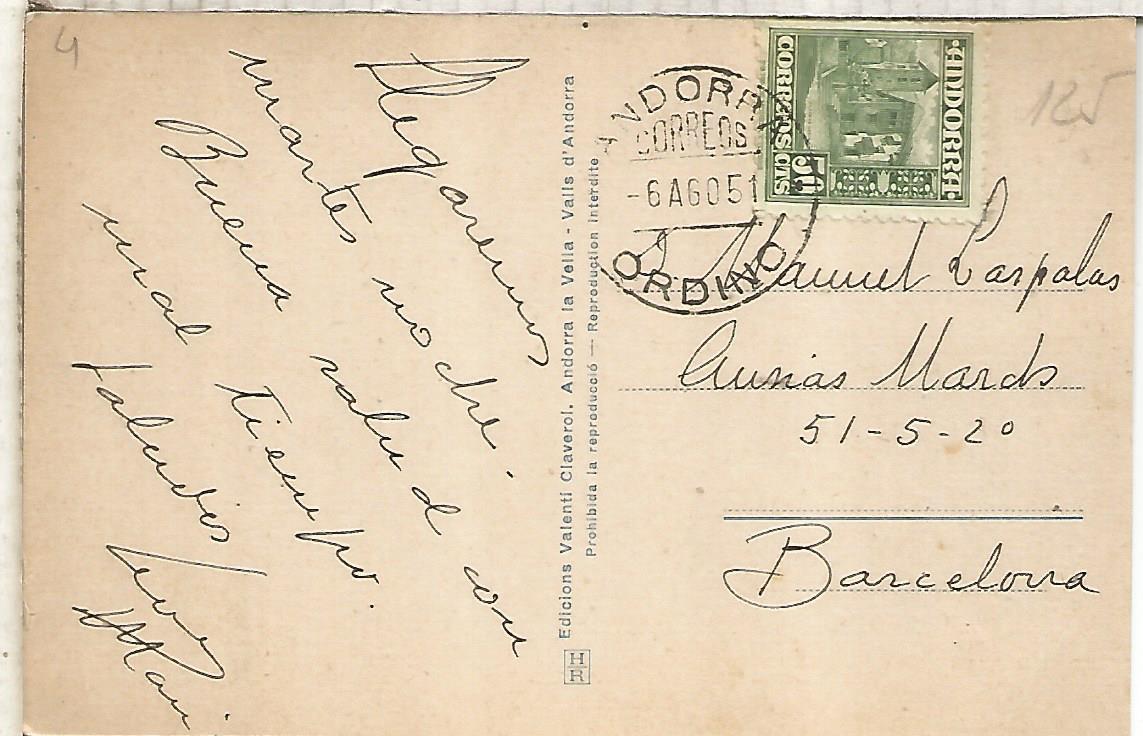 4
Llegaremos
martes noche.
Buena salud con
mal tiempo.
Saludos
Edicions Valentí Claverol. Andorra la Vella - Valls d'Andorra
Prohibida la reproducció — Reproduction interdite
H
R
ANDORRA
CORREOS
-6 AGO 51
ORDINO
ANDORRA
CORREOS
50 CTS
125
D. Manuel Laspalas
Ausias March
51-5-2º
Barcelona